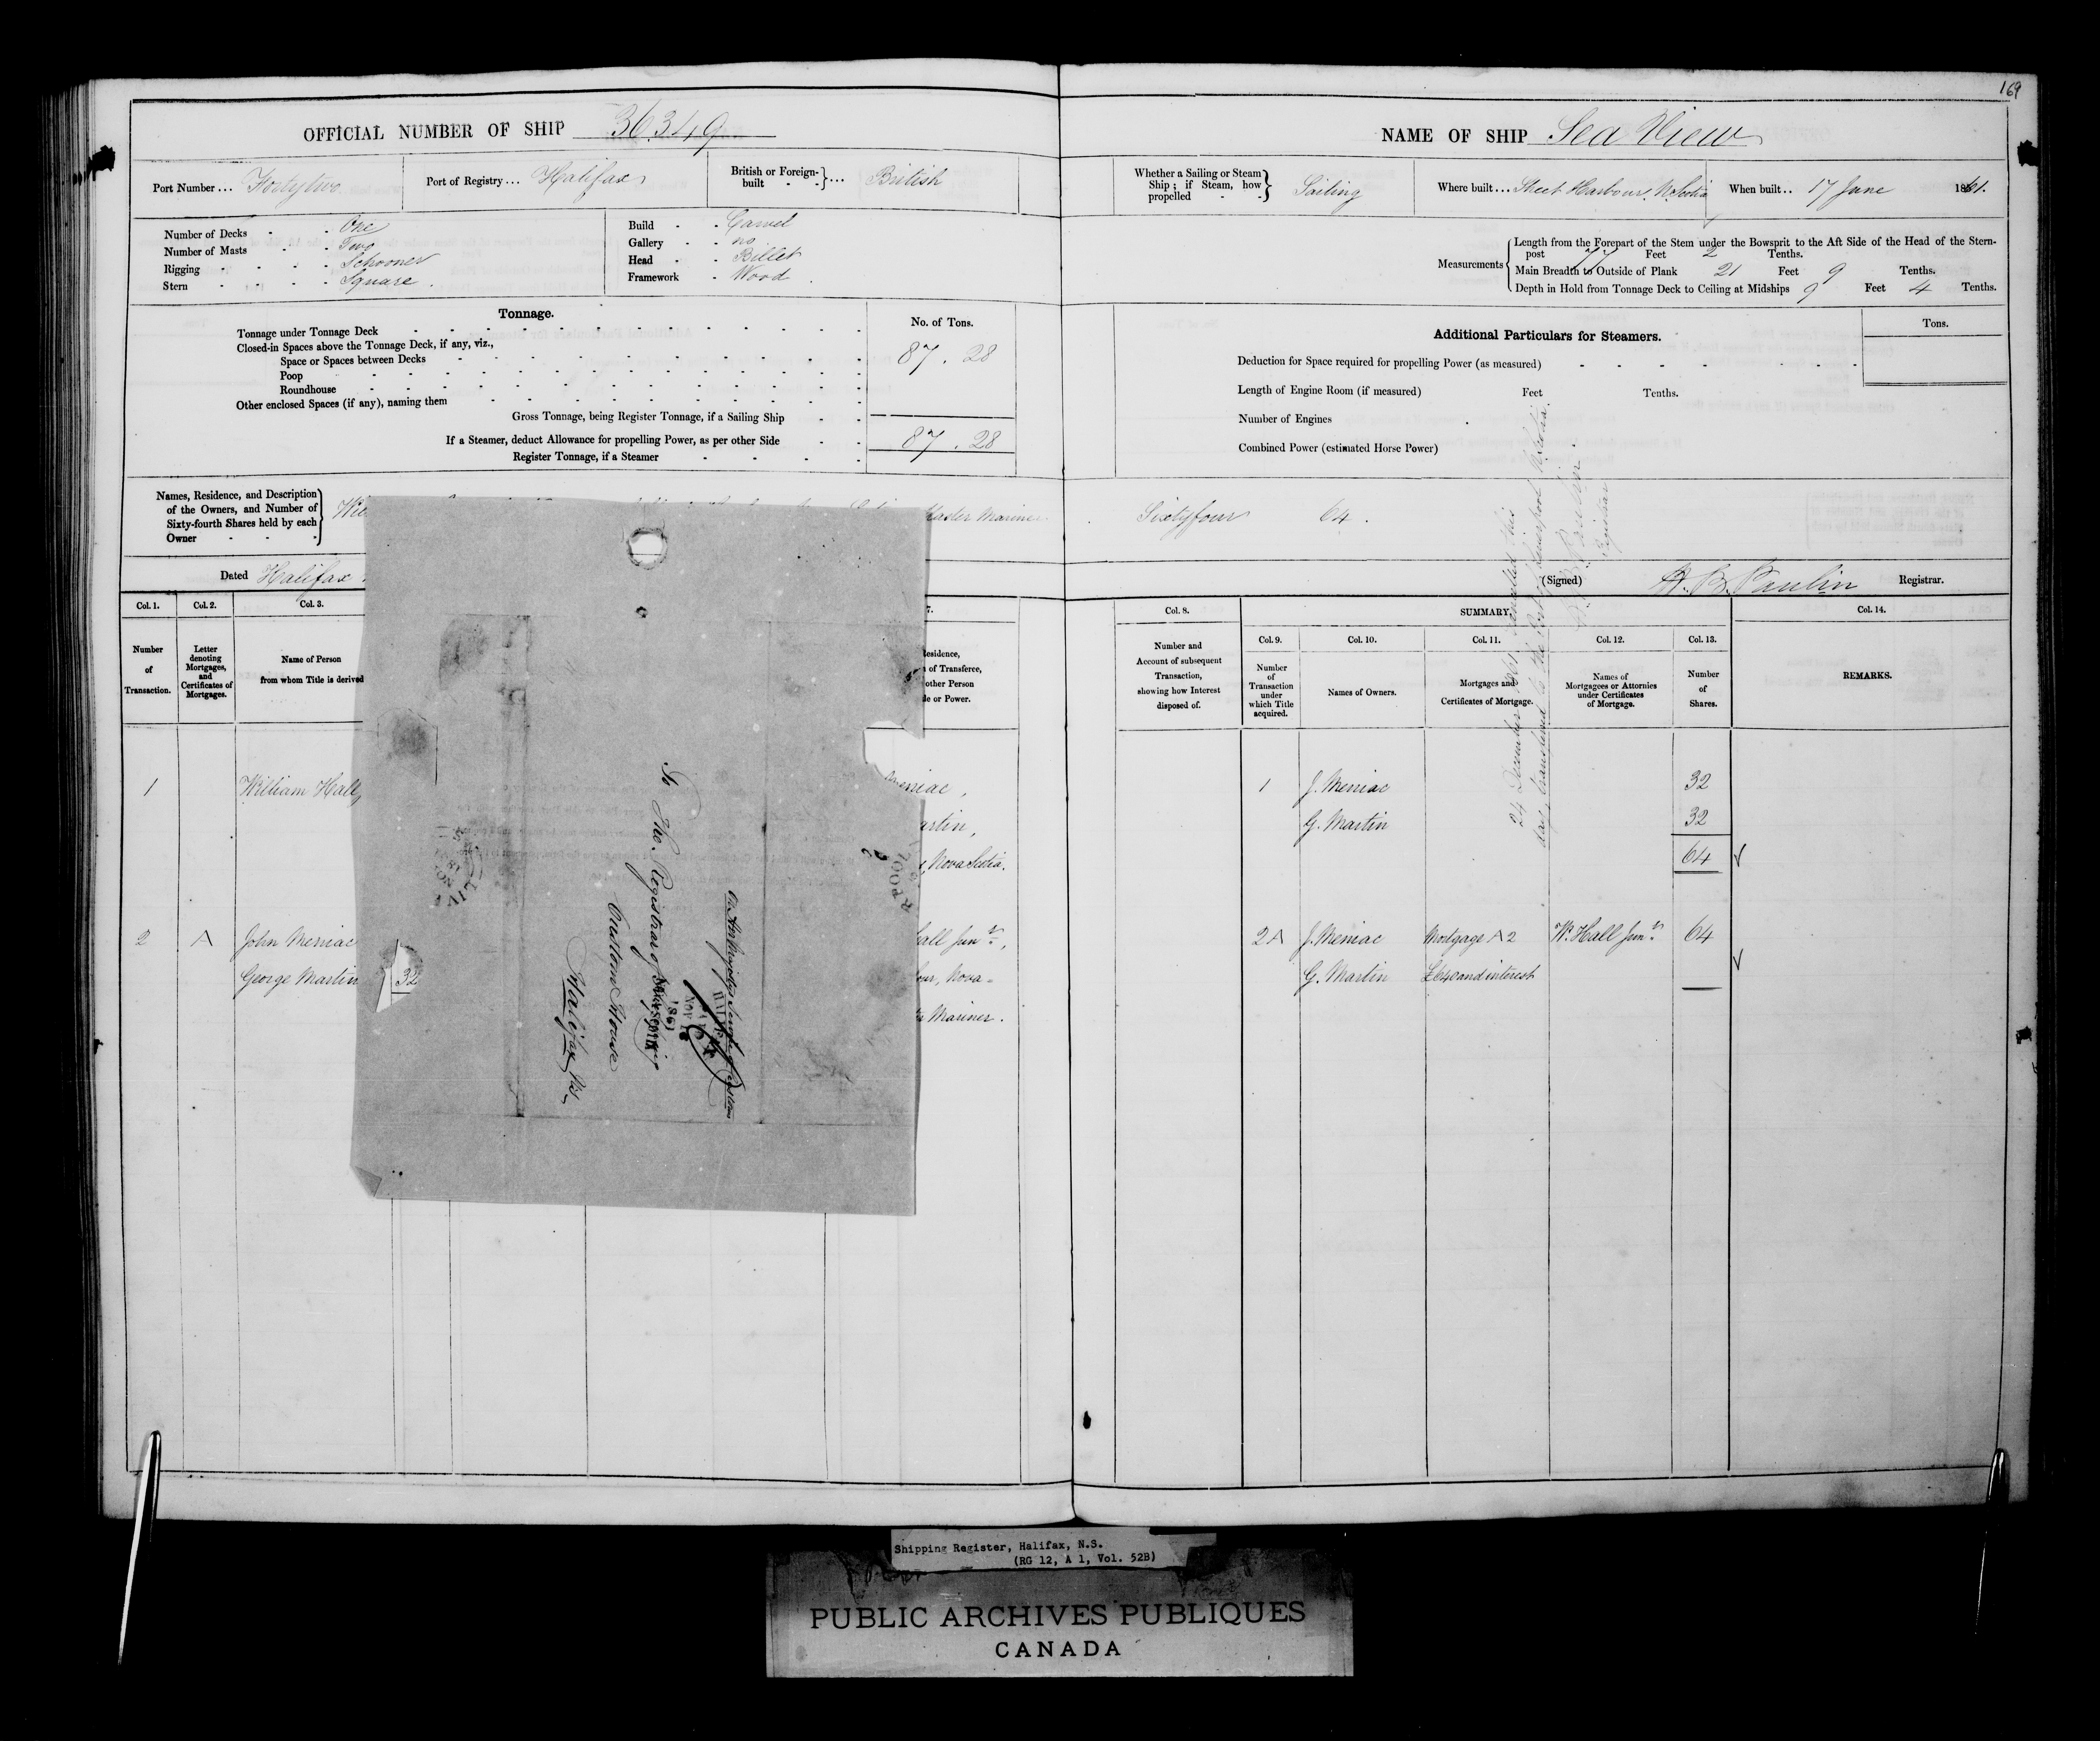 169
OFFICIAL NUMBER OF SHIP 36349
NAME OF SHIP Sea View
Port Number... Fortytwo
Port of Registry... Halifax
British or Foreign-built - -}... British
Whether a Sailing or Steam Ship; if Steam, how propelled - -} Sailing
Where built... Sheet Harbour, N. Scotia
When built.. 17 June 1861.
Number of Decks - - One
Number of Masts - - Two
Rigging - - - - Schooner
Stern - - - - Square.
Build - - Carvel
Gallery - - no
Head - - Billet
Framework - Wood
Measurements
Length from the Forepart of the Stem under the Bowsprit to the Aft Side of the Head of the Stern-
post 77 Feet 2 Tenths.
Main Breadth to Outside of Plank 21 Feet 9 Tenths.
Depth in Hold from Tonnage Deck to Ceiling at Midships 9 Feet 4 Tenths.
Tonnage.
No. of Tons.
Tonnage under Tonnage Deck
Closed-in Spaces above the Tonnage Deck, if any, viz.,
Space or Spaces between Decks 87.28
Poop
Roundhouse
Other enclosed Spaces (if any), naming them
Gross Tonnage, being Register Tonnage, if a Sailing Ship
If a Steamer, deduct Allowance for propelling Power, as per other Side 87.28
Register Tonnage, if a Steamer
Additional Particulars for Steamers.
Tons.
Deduction for Space required for propelling Power (as measured)
Length of Engine Room (if measured) Feet Tenths.
Number of Engines
Combined Power (estimated Horse Power)
Names, Residence, and Description
of the Owners, and Number of
Sixty-fourth Shares held by each
Owner - - -
Master Mariner
Sixtyfour 64.
Dated Halifax
(Signed) H. B. Paulin Registrar.
Col. 1. Col. 2. Col. 3. 7.
Number of Transaction.
Letter denoting Mortgages, and Certificates of Mortgages.
Name of Person from whom Title is derived
Residence,
of Transferee,
other Person
or Power.
Col. 8.
Number and Account of subsequent Transaction, showing how Interest disposed of.
SUMMARY.
Col. 9. Col. 10. Col. 11. Col. 12. Col. 13. Col. 14.
Number of Transaction under which Title acquired.
Names of Owners.
Mortgages and Certificates of Mortgage.
Names of Mortgagees or Attornies under Certificates of Mortgage.
Number of Shares.
REMARKS.
1 William Hall,
Meniac,
Martin,
Nova Scotia.
2 A John Meniac
George Martin 32
Hall Junr.,
Nova-
Mariner.
1 J. Meniac 32
G. Martin 32
64
2A J. Meniac Mortgage A2 W. Hall Junr. 64
G. Martin £640 and interest
24 December 1861 Cancelled this
day, transferred to the Port of Liverpool N. Scotia.
H. B. Paulin
Registrar
On Her Majestys Service Customs
To The Registrar of Shipping
Custom House
Halifax NS
HALIFAX
NOV
1861
Shipping Register, Halifax, N.S.
(RG 12, A 1, Vol. 52B)
PUBLIC ARCHIVES PUBLIQUES
CANADA